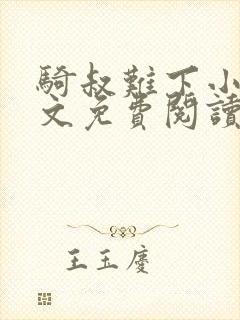 騎叔難下小
文免費閱讀
王玉慶